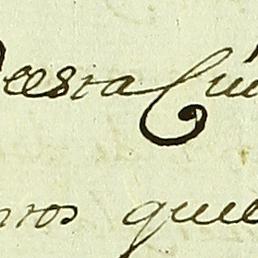 Deesta Ciu
nros que